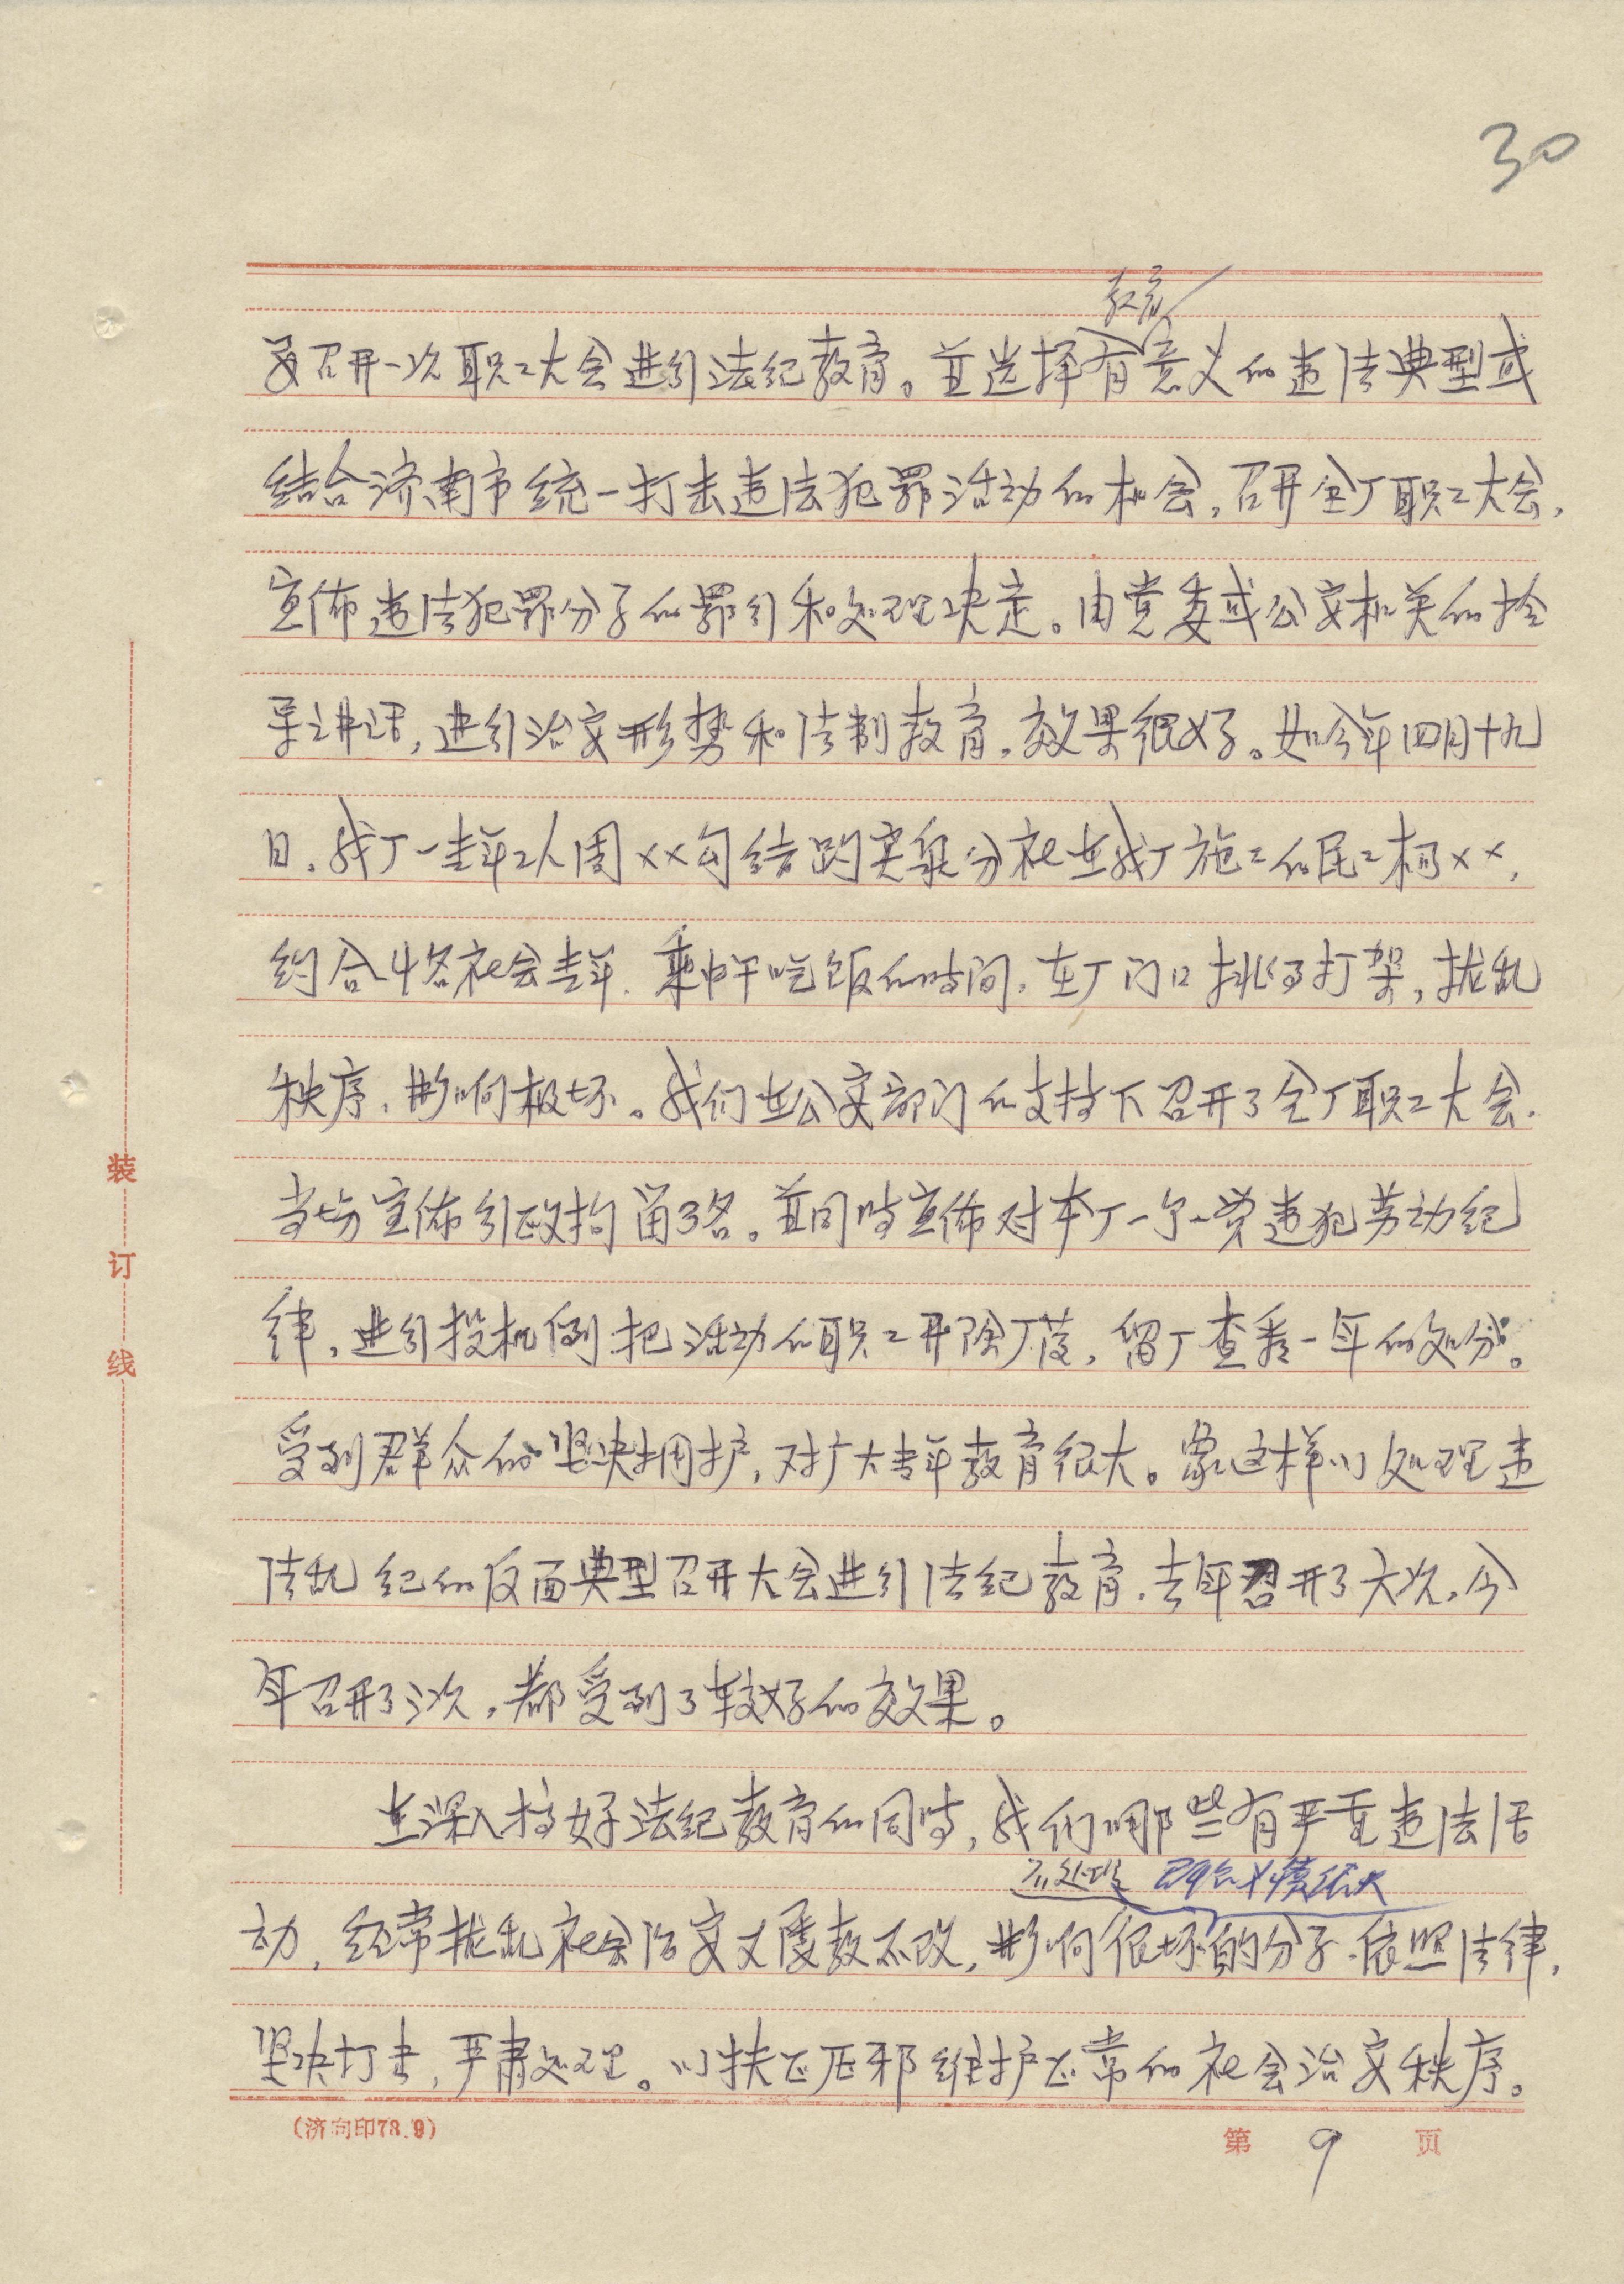 30
教育
要召开一次职工大会进行法纪教育。并选择有意义的违法典型或
结合济南市统一打击违法犯罪活动的机会，召开全厂职工大会，
宣佈违法犯罪分子的罪行和处理决定。由党委或公安机关的领
导讲话，进行治安形势和法制教育，效果很好。如今年四月十九
日，我厂一青年工人周××勾结趵突泉分社在我厂施工的民工柯××，
约合4名社会青年，乘中午吃饭的时间，在厂门口挑衅打架，扰乱
秩序，影响极坏。我们在公安部门的支持下召开了全厂职工大会，
当场宣佈行政拘留3名。并同时宣佈对本厂一个一贯违犯劳动纪
律，进行投机倒把活动的职工开除厂籍，留厂查看一年的处分。
受到群众的坚决拥护，对广大青年教育很大。象这样以处理违
法乱纪的反面典型召开大会进行法纪教育，去年召开了六次，今
年召开了三次，都受到了较好的效果。
在深入搞好法纪教育的同时，我们对那些有严重违法活
应处理
动，经常扰乱社会治安又屡教不改，影响很坏的分子，依照法律，
坚决打击，严肃处理。以扶正压邪维护正常的社会治安秩序。
装
订
线
（济向印78.9）
第 9 页